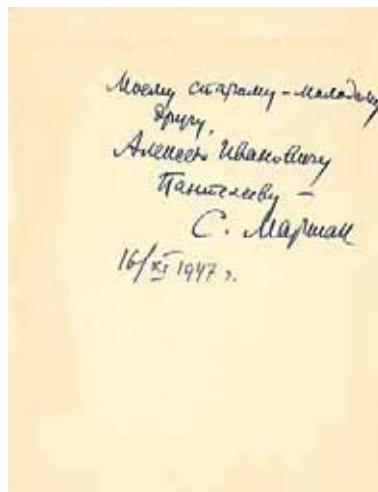 Моему старому - молодому
другу,
Алексею Ивановичу
Пантелееву -
С. Маршак
16/XI 1947 г.